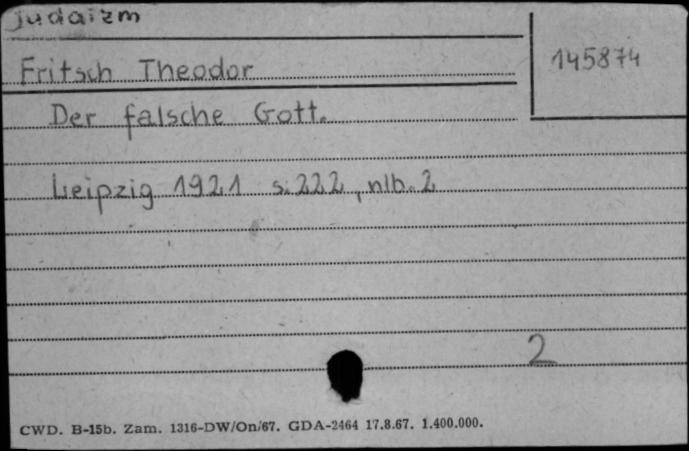 judaizm
145874
Fritsch Theodor
Der falsche Gott.
Leipzig 1921 s. 222, nlb. 2
2
CWD. B-15b. Zam. 1316-DW/On/67. GDA-2464 17.8.67. 1.400.000.